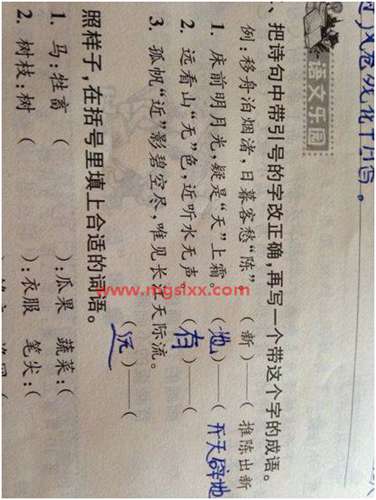 语文乐园
、把诗句中带引号的字改正确,再写一个带这个字的成语。
例:移舟泊烟渚,日暮客愁“陈”。 (新) (推陈出新
1. 床前明月光,疑是“天”上霜。 (地)—(开天辟地
2. 远看山“无”色,近听水无声。 (有)—(
3. 孤帆“近”影碧空尽,唯见长江天际流。 (远)—(
照样子,在括号里填上合适的词语。
1. 马:牲畜 ( ):瓜果 蔬菜:(
2. 树枝:树 ( ):衣服 笔尖:(
www.mgslxx.com